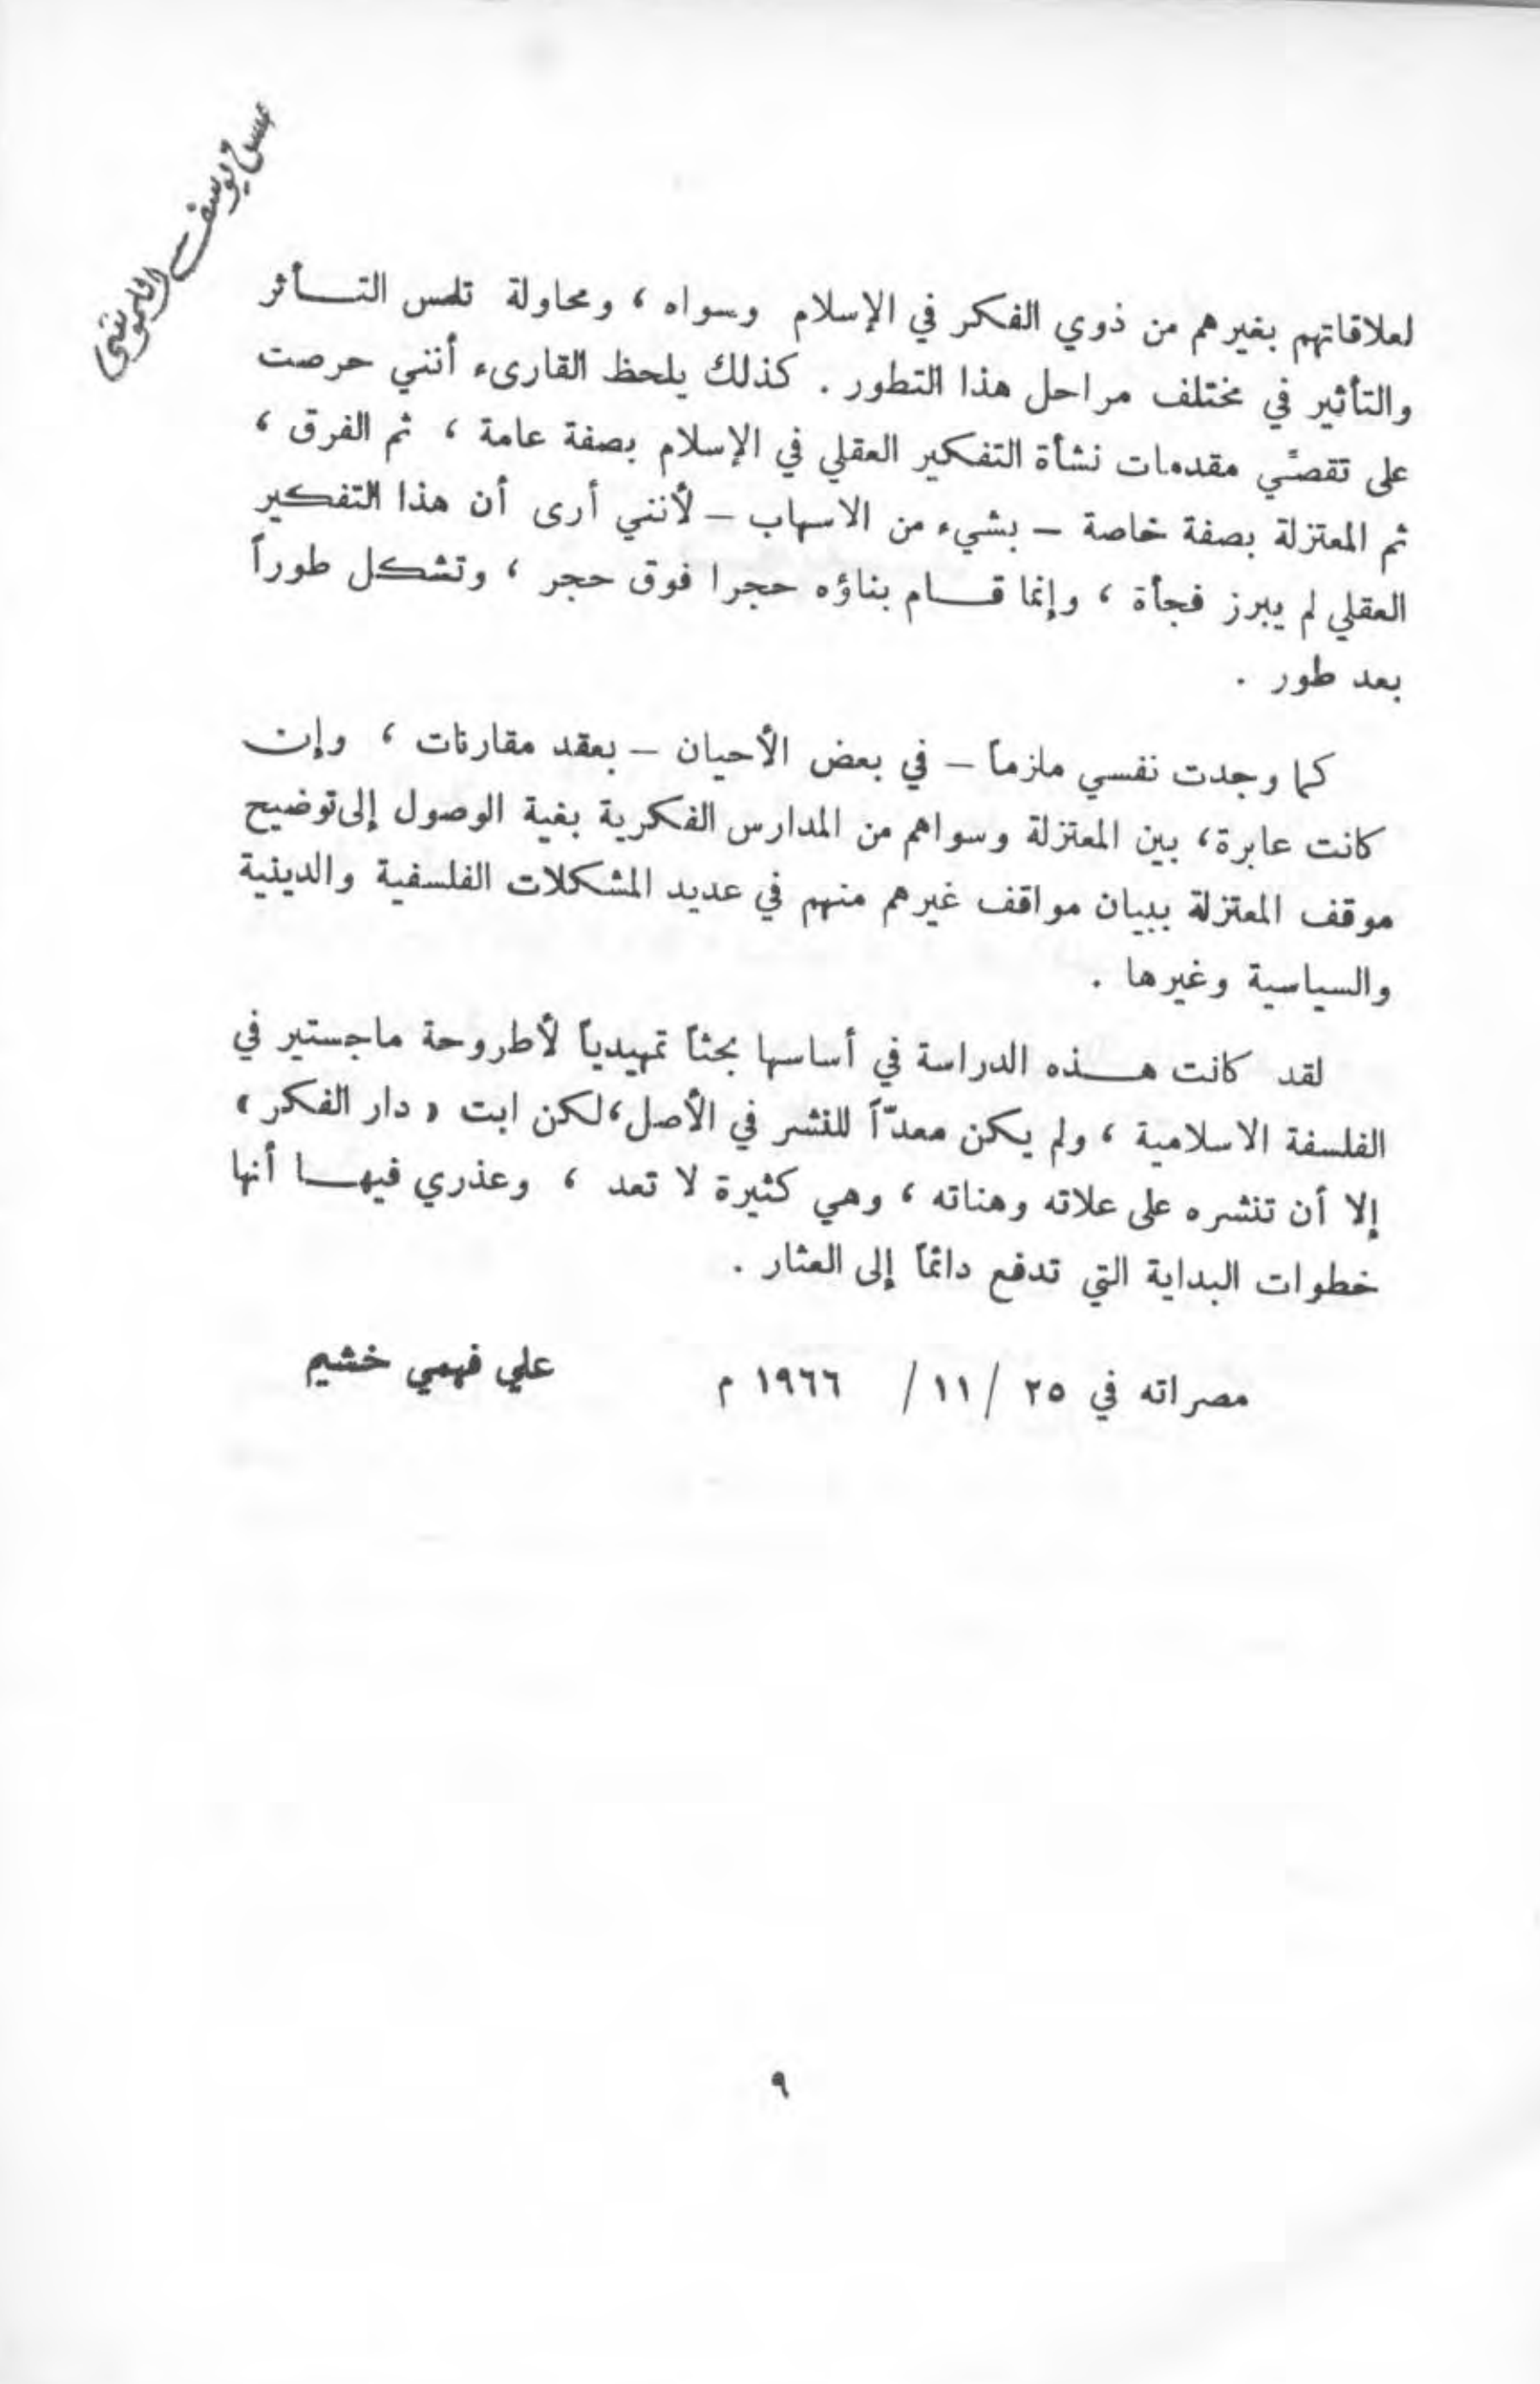 لعلاقاتهم بغيرهم من ذوي الفكر في الإسلام وسواه ، ومحاولة تلمس التـــأثر
والتأثير في مختلف مراحل هذا التطور . كذلك يلحظ القارىء أنني حرصت
على تقصّي مقدمات نشأة التفكير العقلي في الإسلام بصفة عامة ، ثم الفرق ،
ثم المعتزلة بصفة خاصة – بشيء من الاسهاب – لأنني أرى أن هذا التفكير
العقلي لم يبرز فجأة ، وإنما قـــام بناؤه حجرا فوق حجر ، وتشكل طوراً
بعد طور .
كما وجدت نفسي ملزماً – في بعض الأحيان – بعقد مقارنات ، وإن
كانت عابرة، بين المعتزلة وسواهم من المدارس الفكرية بغية الوصول إلى توضيح
موقف المعتزلة ببيان مواقف غيرهم منهم في عديد المشكلات الفلسفية والدينية
والسياسية وغيرها .
لقد كانت هـــذه الدراسة في أساسها بحثاً تمهيدياً لأطروحة ماجستير في
الفلسفة الاسلامية ، ولم يكن معدّاً للنشر في الأصل، لكن ابت « دار الفكر »
إلا أن تنشره على علاته وهناته ، وهي كثيرة لا تعد ، وعذري فيهـــا أنها
خطوات البداية التي تدفع دائماً إلى العثار .
مصراته في ٢٥ / ١١ / ١٩٦٦ م علي فهمي خشيم
٩